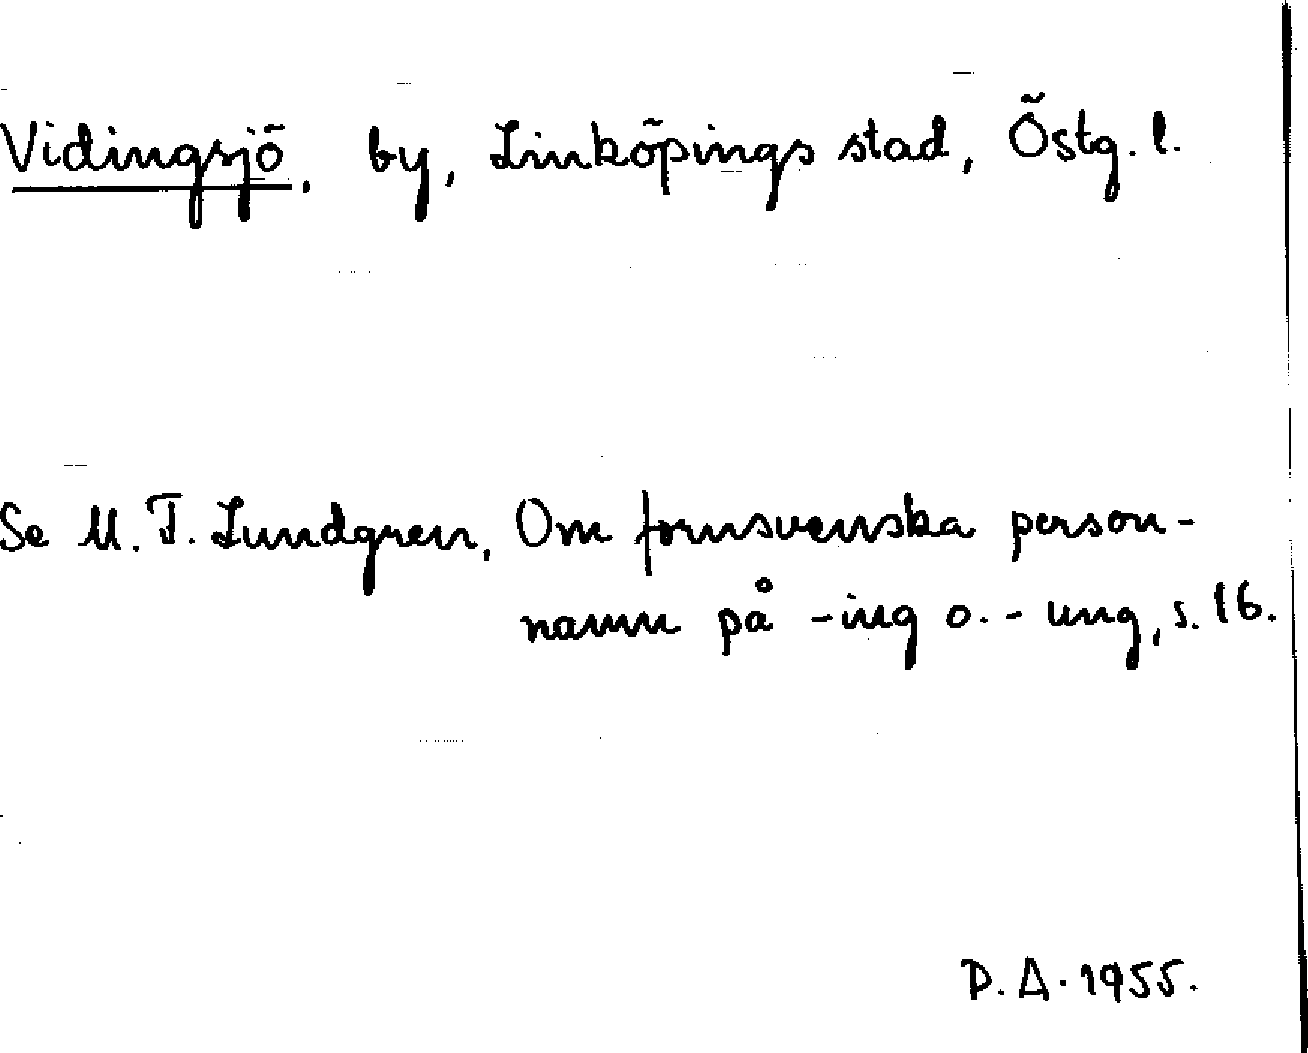 Vidingsjö, by, Linköpings stad, Östg. l.
Se M. F. Lundgren, Om fornsvenska person-
namn på -ing o. -ung, s. 16.
D. A. 1955.